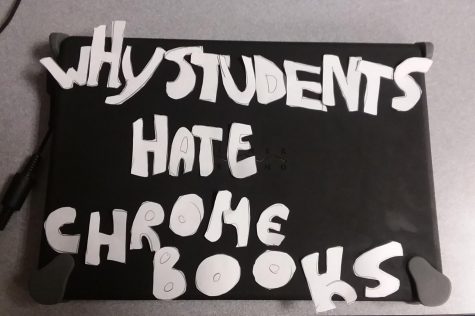 WHY STUDENTS
HATE
CHROME
BOOKS